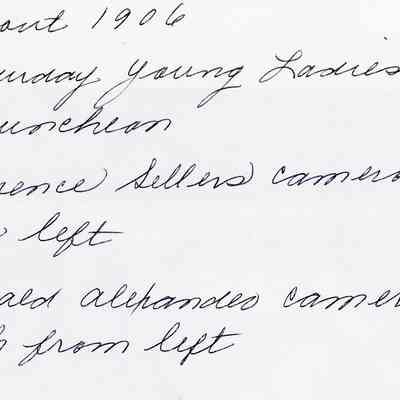 out 1906
urday Young Ladies
uncheon
ence Sellers camera
left
ald Alexander camer
from left